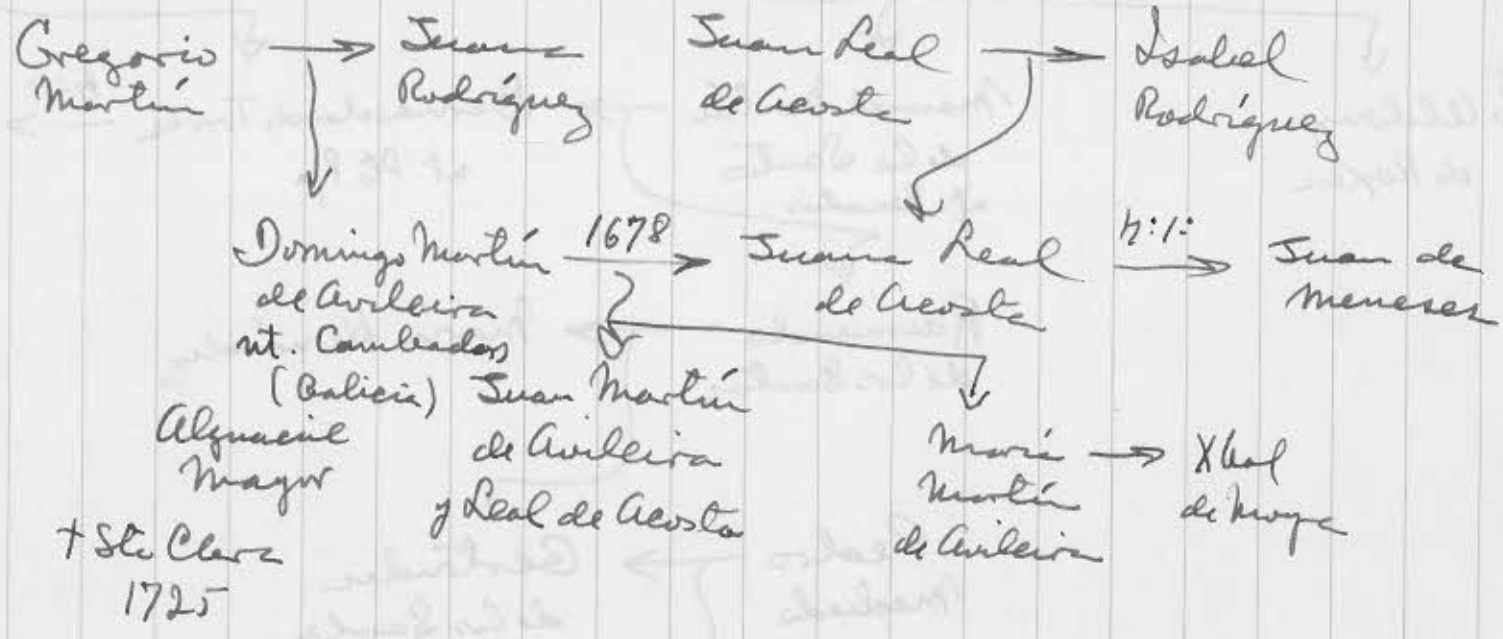 Gregorio
Martín
Juana
Rodríguez
Juan Leal
de Acosta
Isabel
Rodríguez
Domingo Martín
de Avileira
nt. Cambados
(Galicia)
Alguacil
Mayor
+ Sta Clara
1725
1678
Juana Leal
de Acosta
Juan de
Meneses
Juan Martín
de Avileira
y Leal de Acosta
María
Martín
de Avileira
Xbal
de Moya